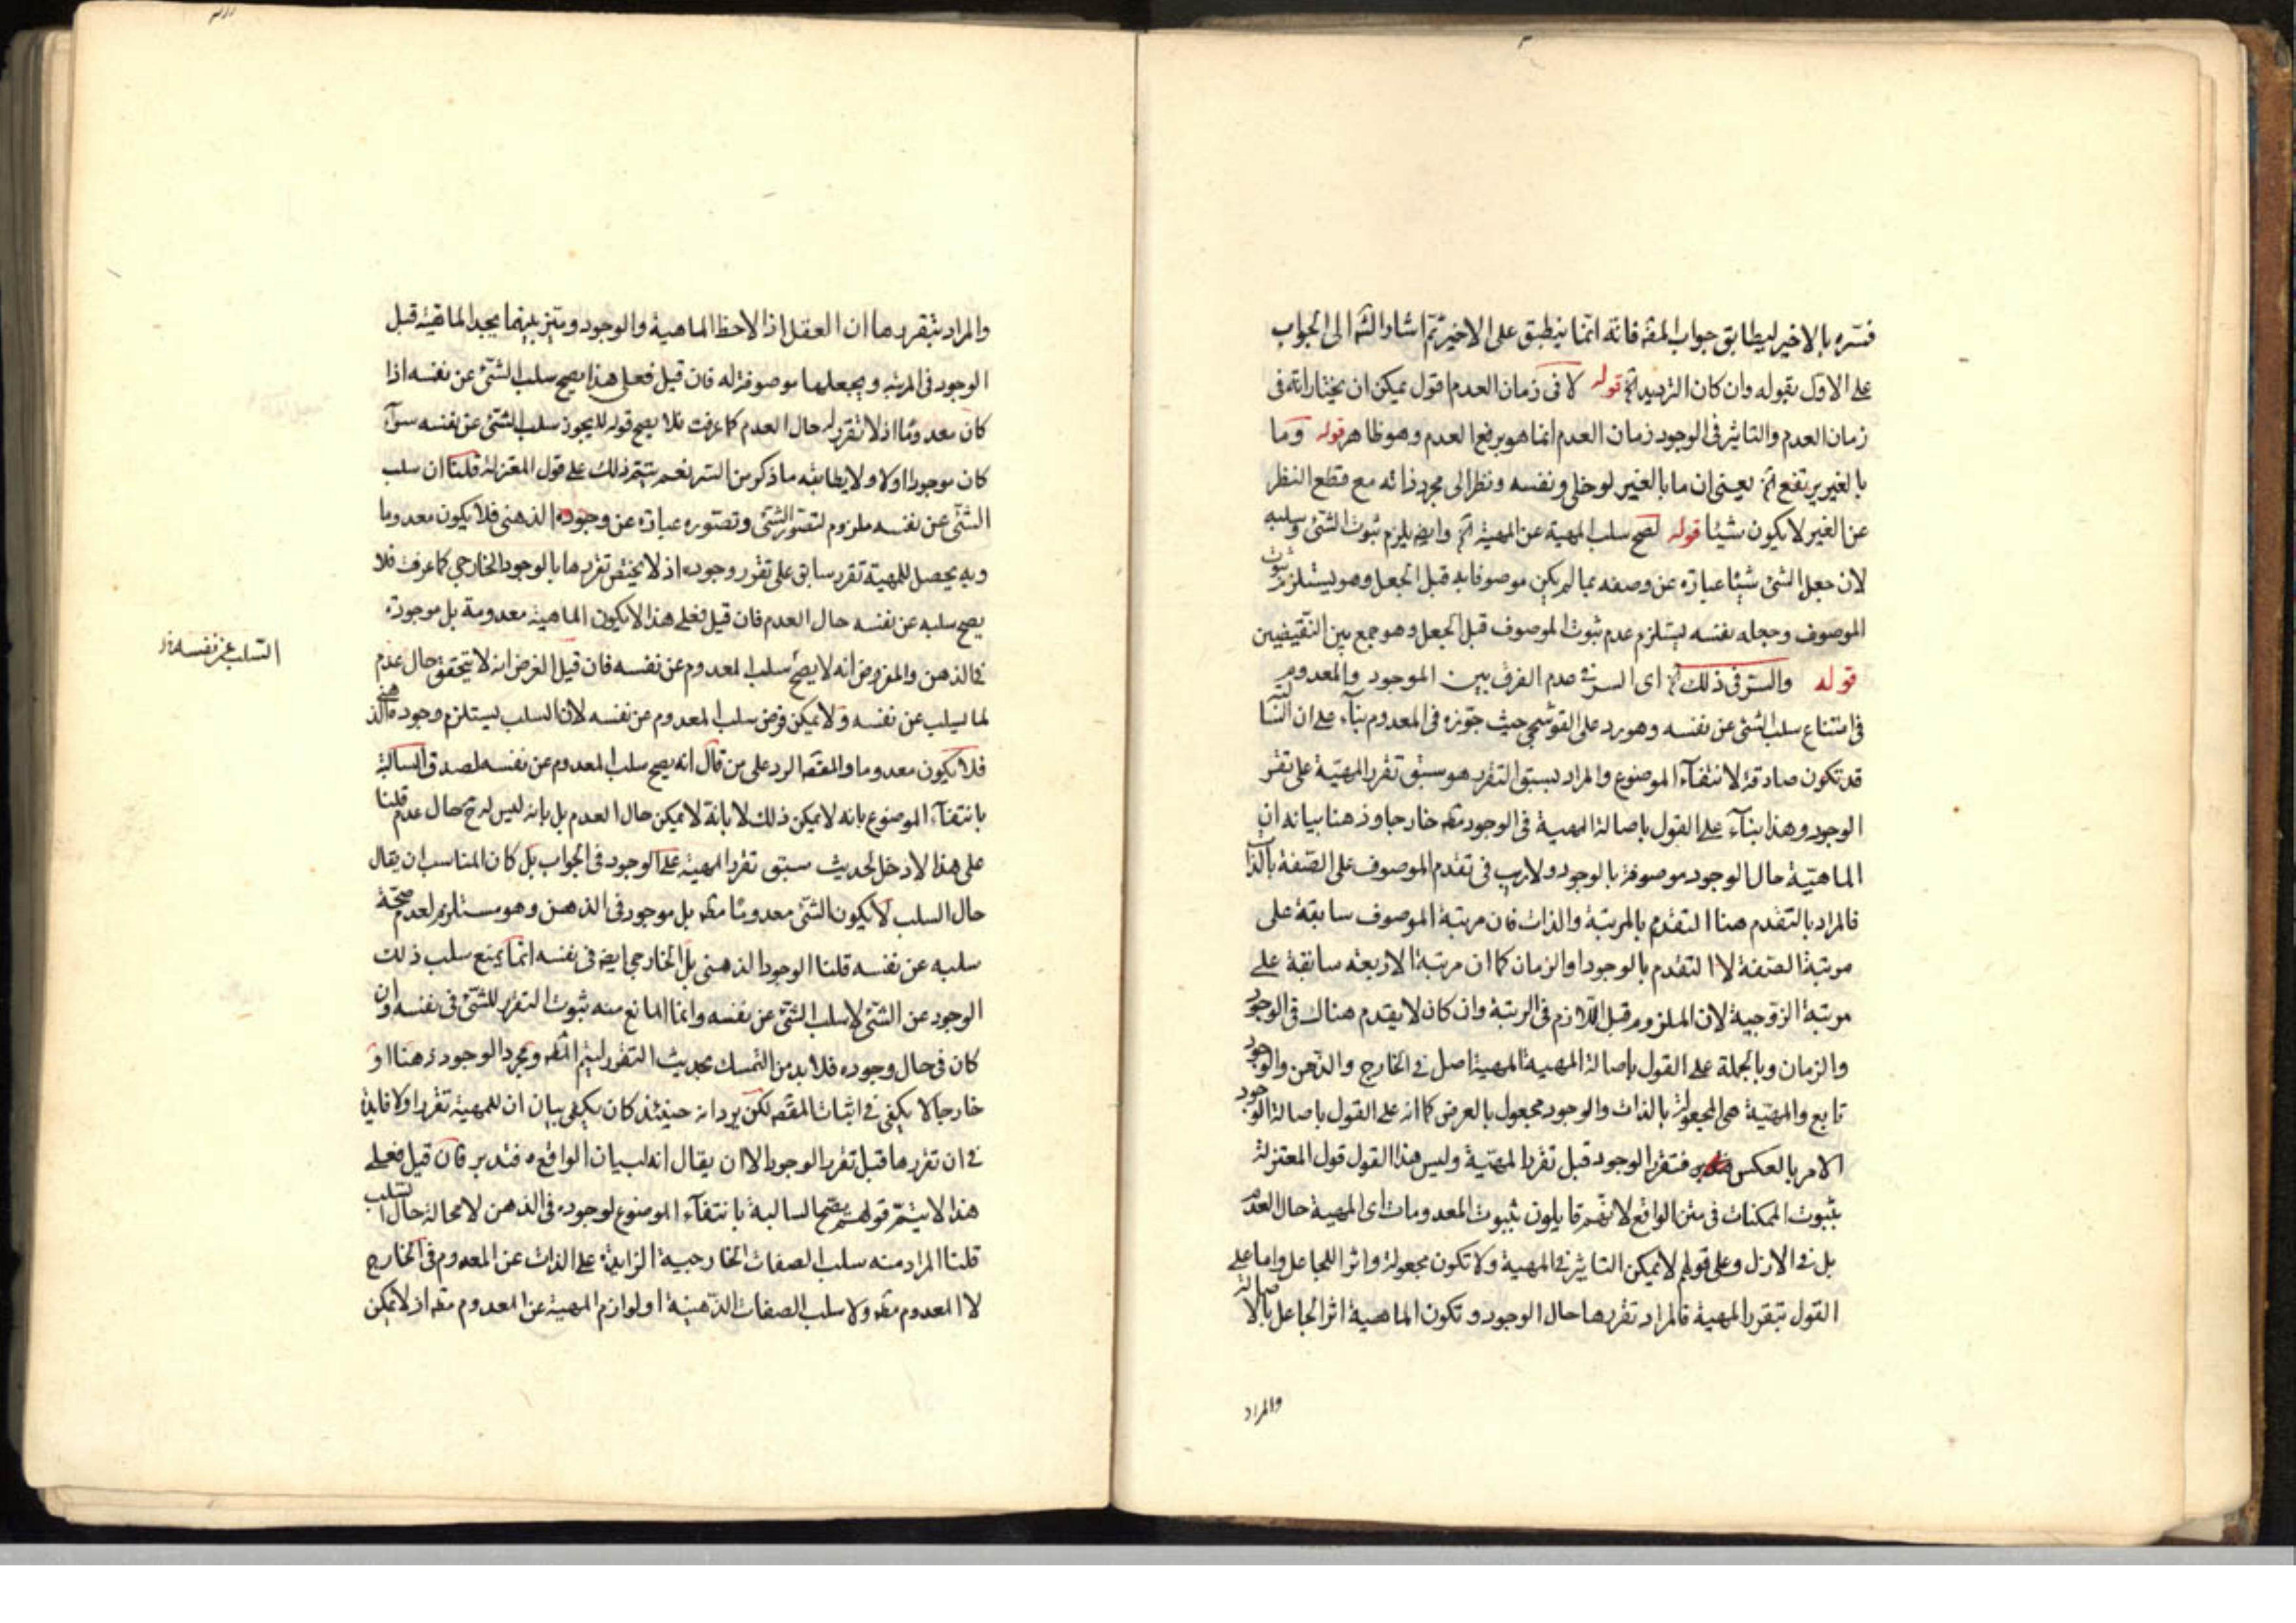 فسّره بالاخير ليطابق جواب المقه فانه انما ينطبق على الاخير ثم اشار الشه الى الجواب
على الاول بقوله وان كان الترديد الخ قوله لا فى زمان العدم اقول يمكن ان يختار انه فى
زمان العدم والتاثير فى الوجود زمان العدم انما هو برفع العدم وهو ظاهر قوله وما
بالغير يرتفع الخ يعنى ان ما بالغير لو خلى ونفسه ونظر الى مجرد ذاته مع قطع النظر
عن الغير لا يكون شيئا قوله لصح سلب المهية عن المهية الخ وايضه يلزم ثبوت الشئ وسلبه
لان جعل الشئ شيئا عبارة عن وصفه بما لم يكن موصوفا به قبل الجعل وهو يستلزم ثبوت
الموصوف وجعله نفسه يستلزم عدم ثبوت الموصوف قبل الجعل وهو جمع بين النقيضين
قوله والسر فى ذلك الخ اى السر فى عدم الفرق بين الموجود والمعدوم
فى امتناع سلب الشئ عن نفسه وهو رد على القوشجى حيث جوزه فى المعدوم بناء على ان السالبة
قد تكون صادقة لانتفاء الموضوع والمراد بسبق التقرر هو سبق تقرر المهية على تقرر
الوجود وهذا بناء على القول باصالة المهية فى الوجود مقه خارجا وذهنا بيانه ان
الماهية حال الوجود موصوفة بالوجود ولا ريب فى تقدم الموصوف على الصفة بالذات
فالمراد بالتقدم هنا التقدم بالمرتبة والذات فان مرتبة الموصوف سابقة على
مرتبة الصفة لا التقدم بالوجود او الزمان كما ان مرتبة الاربعة سابقة على
مرتبة الزوجية لان الملزوم قبل اللازم فى الرتبة وان كان لا يقدم هناك فى الوجود
والزمان وبالجملة على القول باصالة المهية المهية اصل فى الخارج والذهن والوجود
تابع والمهية هى المجعولة بالذات والوجود مجعول بالعرض كما انه على القول باصالة الوجود
الامر بالعكس فتقرر الوجود قبل تقرر المهية وليس هذا القول قول المعتزلة
بثبوت الممكنات فى متن الواقع لانهم قايلون بثبوت المعدومات اى المهية حال العدم
بل فى الازل وعلى قولهم لا يمكن التاثير فى المهية ولا تكون مجعولة واثرا للجاعل واما على
القول بتقرر المهية فالمراد تقررها حال الوجود وتكون الماهية اثر الجاعل بالاصالة
والمراد
والمراد بتقررها ان العقل اذا لاحظ الماهية والوجود وميز بينهما يجد الماهية قبل
الوجود فى المرتبة ويجعلها موصوفة له فان قيل فعلى هذا يصح سلب الشئ عن نفسه اذا
كان معدوما اذ لا تقرر له حال العدم كما عرفت فلا يصح قوله لا يجوز سلب الشئ عن نفسه سواء
كان موجودا اولا ولا يطابقه ما ذكر من السر نعم يتم ذلك على قول المعتزلة قلنا ان سلب
الشئ عن نفسه ملزوم لتصور الشئ وتصوره عبارة عن وجوده الذهنى فلا يكون معدوما
وبه يحصل للمهية تقرر سابق على تقرر وجوده اذ لا يختص تقررها بالوجود الخارجى كما عرفت فلا
يصح سلبه عن نفسه حال العدم فان قيل فعلى هذا لا يكون الماهية معدومة بل موجودة
فى الذهن والمفروض انه لا يصح سلب المعدوم عن نفسه فان قيل الغرض انه لا يتحقق حال عدم
السلب عن نفسه
لما يسلب عن نفسه ولا يمكن فرض سلب المعدوم عن نفسه لان السلب يستلزم وجوده الذهنى
فلا يكون معدوما والمقصه الرد على من قال انه يصح سلب المعدوم عن نفسه لصدق السالبة
بانتفاء الموضوع بانه لا يمكن ذلك لا بانه لا يمكن حال العدم بل بانه ليس له ح حال عدم قلنا
على هذا لا دخل لحديث سبق تقرر المهية على الوجود فى الجواب بل كان المناسب ان يقال
حال السلب لا يكون الشئ معدوما مقه بل موجود فى الذهن وهو مستلزم لعدم صحة
سلبه عن نفسه قلنا الوجود الذهنى بل الخارجى ايضه فى نفسه انما يمنع سلب ذلك
الوجود عن الشئ لا سلب الشئ عن نفسه وانما المانع منه ثبوت التقرر للشئ فى نفسه وان
كان فى حال وجوده فلا بد من التمسك بحديث التقرر ليتم المقه ومجرد الوجود ذهنا او
خارجا لا يكفى فى اثبات المقصه لكن يرد انه حينئذ كان يكفى بيان ان للمهية تقررا ولا فايدة
فى ان تقررها قبل تقرر الوجود الا ان يقال انه لبيان الواقع فتدبر فان قيل فعلى
هذا لا يتم قولهم بصحة السالبة بانتفاء الموضوع لوجوده فى الذهن لا محالة حال السلب
قلنا المراد منه سلب الصفات الخارجية الزايدة على الذات عن المعدوم فى الخارج
لا المعدوم مقه ولا سلب الصفات الذهنية او لوازم المهية عن المعدوم مقه اذ لا يمكن